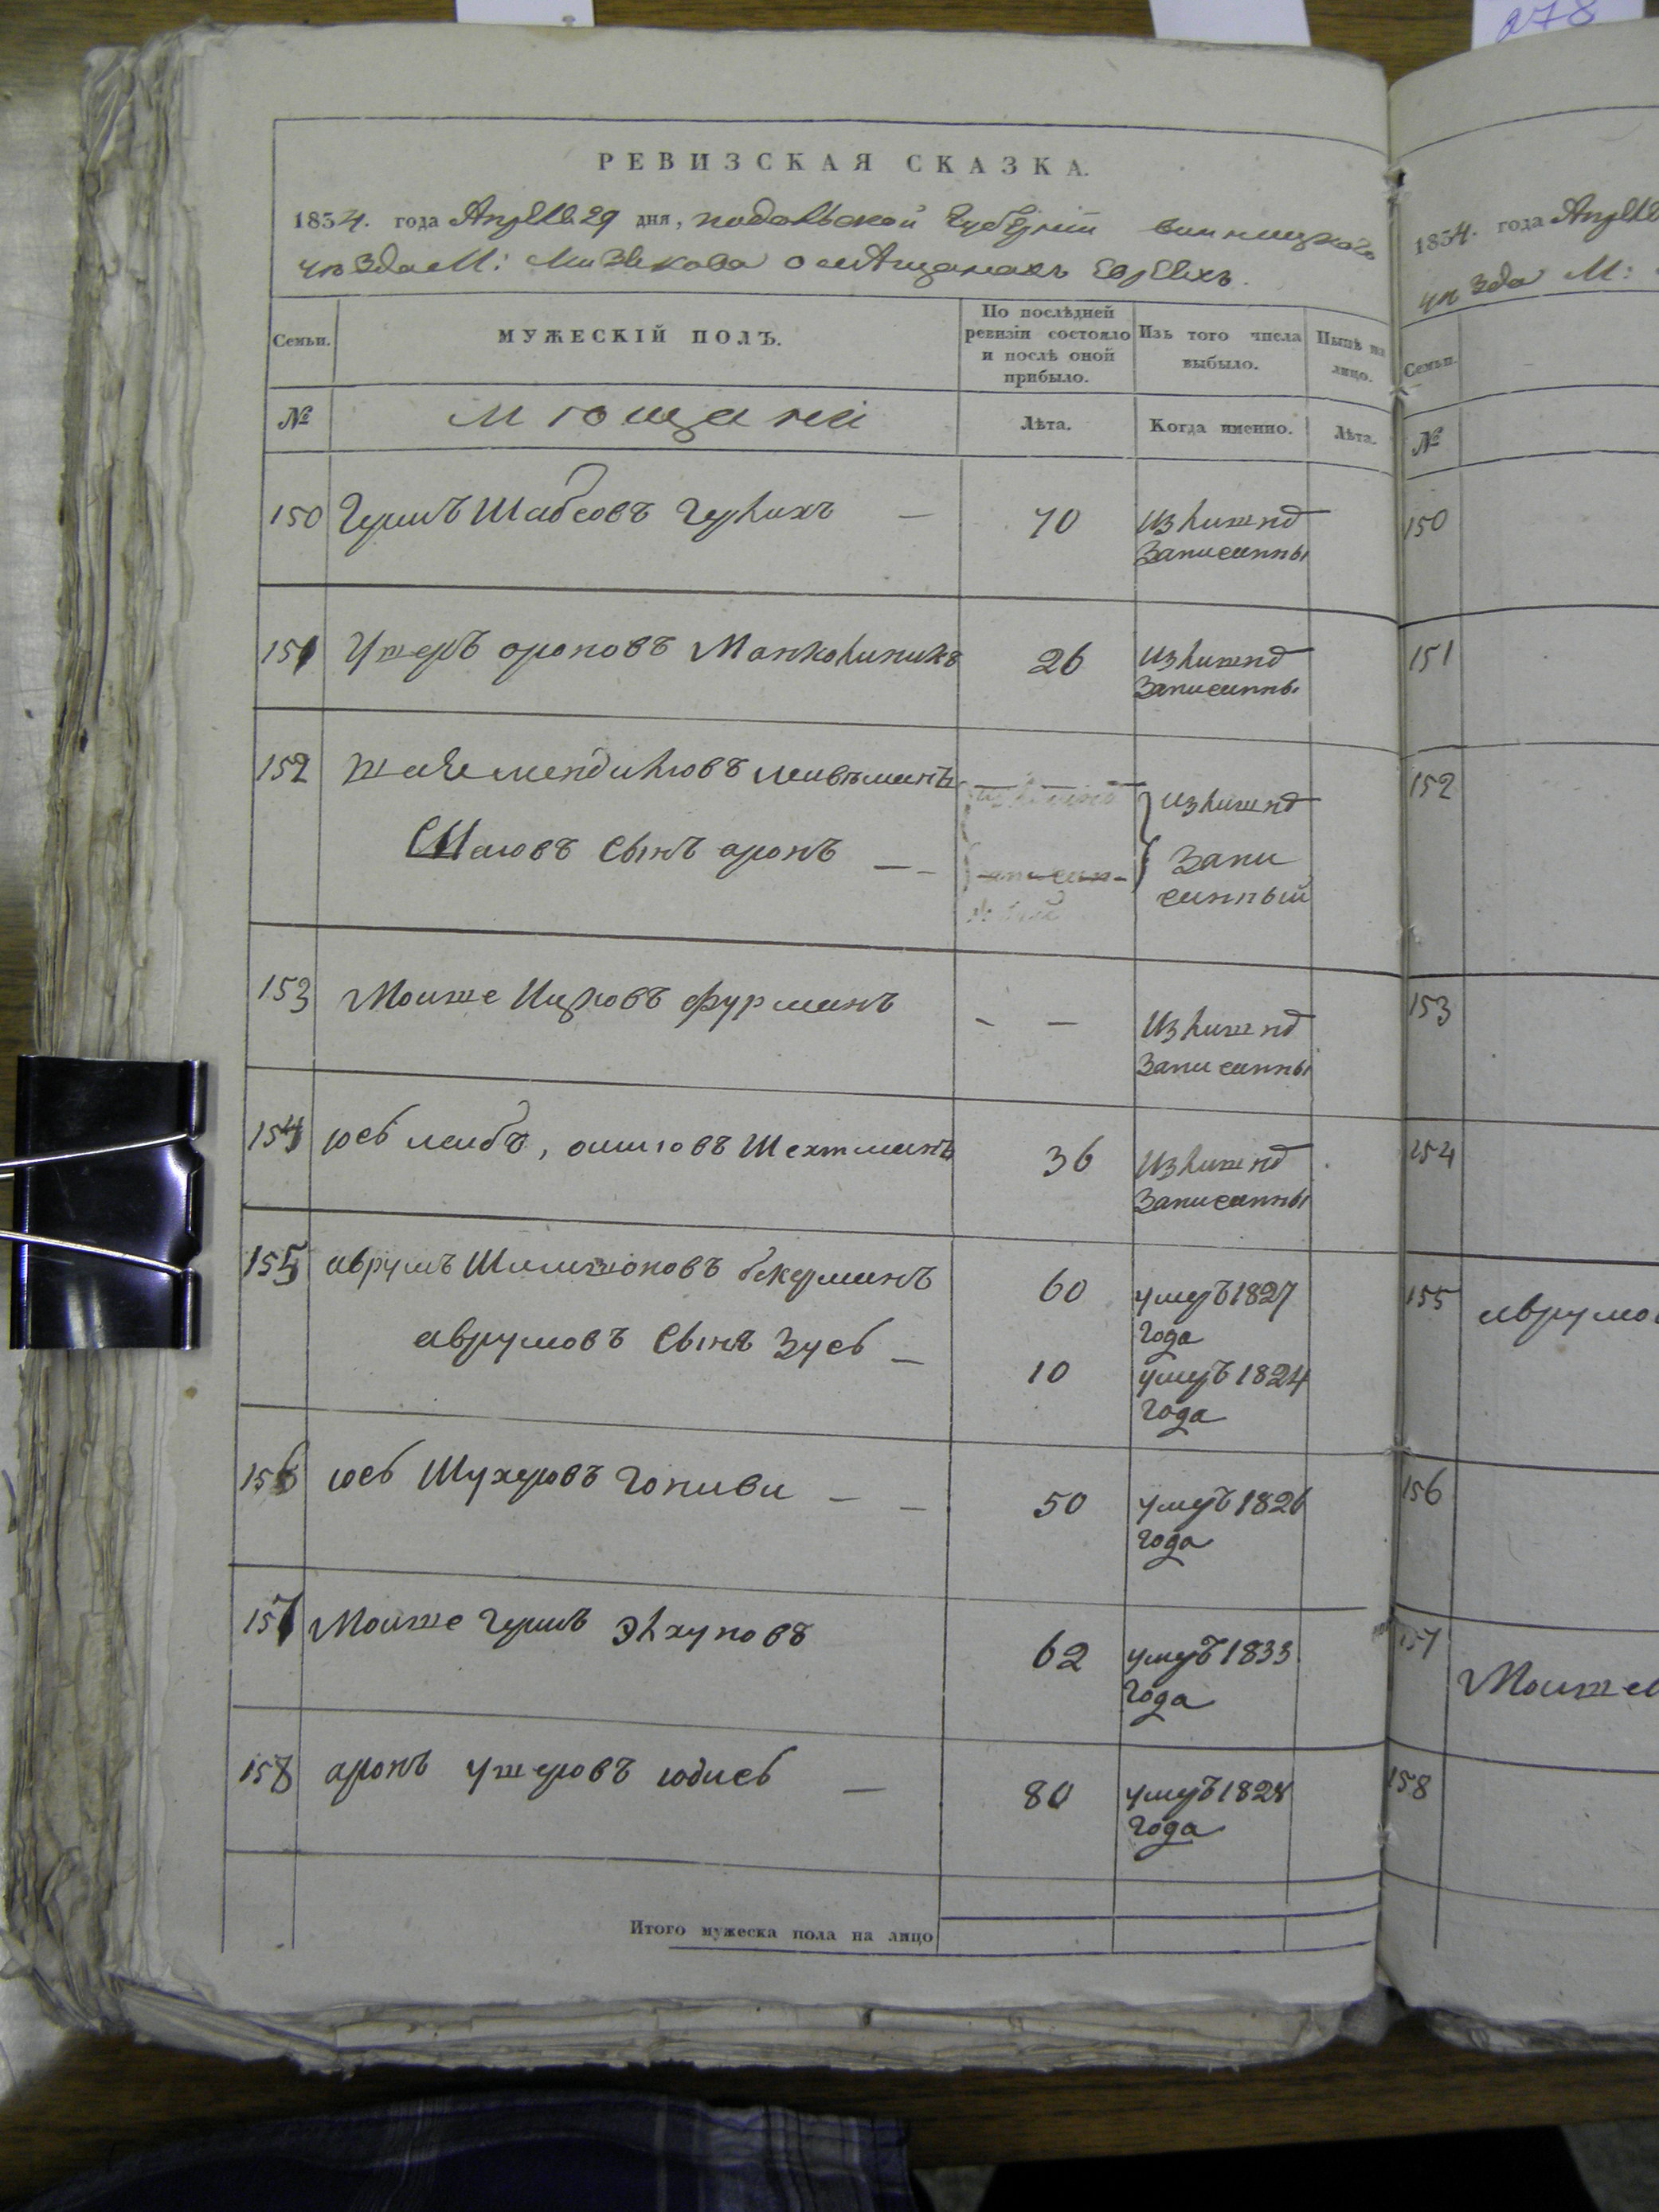 278
РЕВИЗСКАЯ СКАЗКА.
1834. года Апреля 29 дня, подольской Губерніи винницкаго
уѣзда М: Мизякова о мѣщанахъ Евреяхъ.
Семьи.
МУЖЕСКІЙ ПОЛЪ.
По послѣдней ревизіи состояло и послѣ оной прибыло.
Изъ того числа выбыло.
Нынѣ на лицо.
№
мющани
Лѣта.
Когда именно.
Лѣта.
150 Гершъ Шабсовъ — 70 излишнѣ
записанны
151 Ушеръ ороновъ 26 излишнѣ
записанны
152 Шаѣ мендилювъ
Шаювъ сынъ аронъ — — излишнѣ
запи
санный
153 Моише Ицковъ фурманъ - — излишнѣ
записанны
154 юсь лейбъ, Шехтманъ 36 излишнѣ
записанны
155 аврумъ Шимшоновъ бекерманъ 60 умеръ 1827
года
аврумовъ сынъ Зусь — 10 умеръ 1824
года
156 юсь Шухеровъ — — 50 умеръ 1826
года
157 Моише Гершъ элхуновъ 62 умеръ 1833
года
158 аронъ ушеровъ юдись — 80 умеръ 1828
года
Итого мужеска пола на лицо
1834. года
уѣзда М:
Семьи.
№
150
151
152
153
154
155
156
157
158